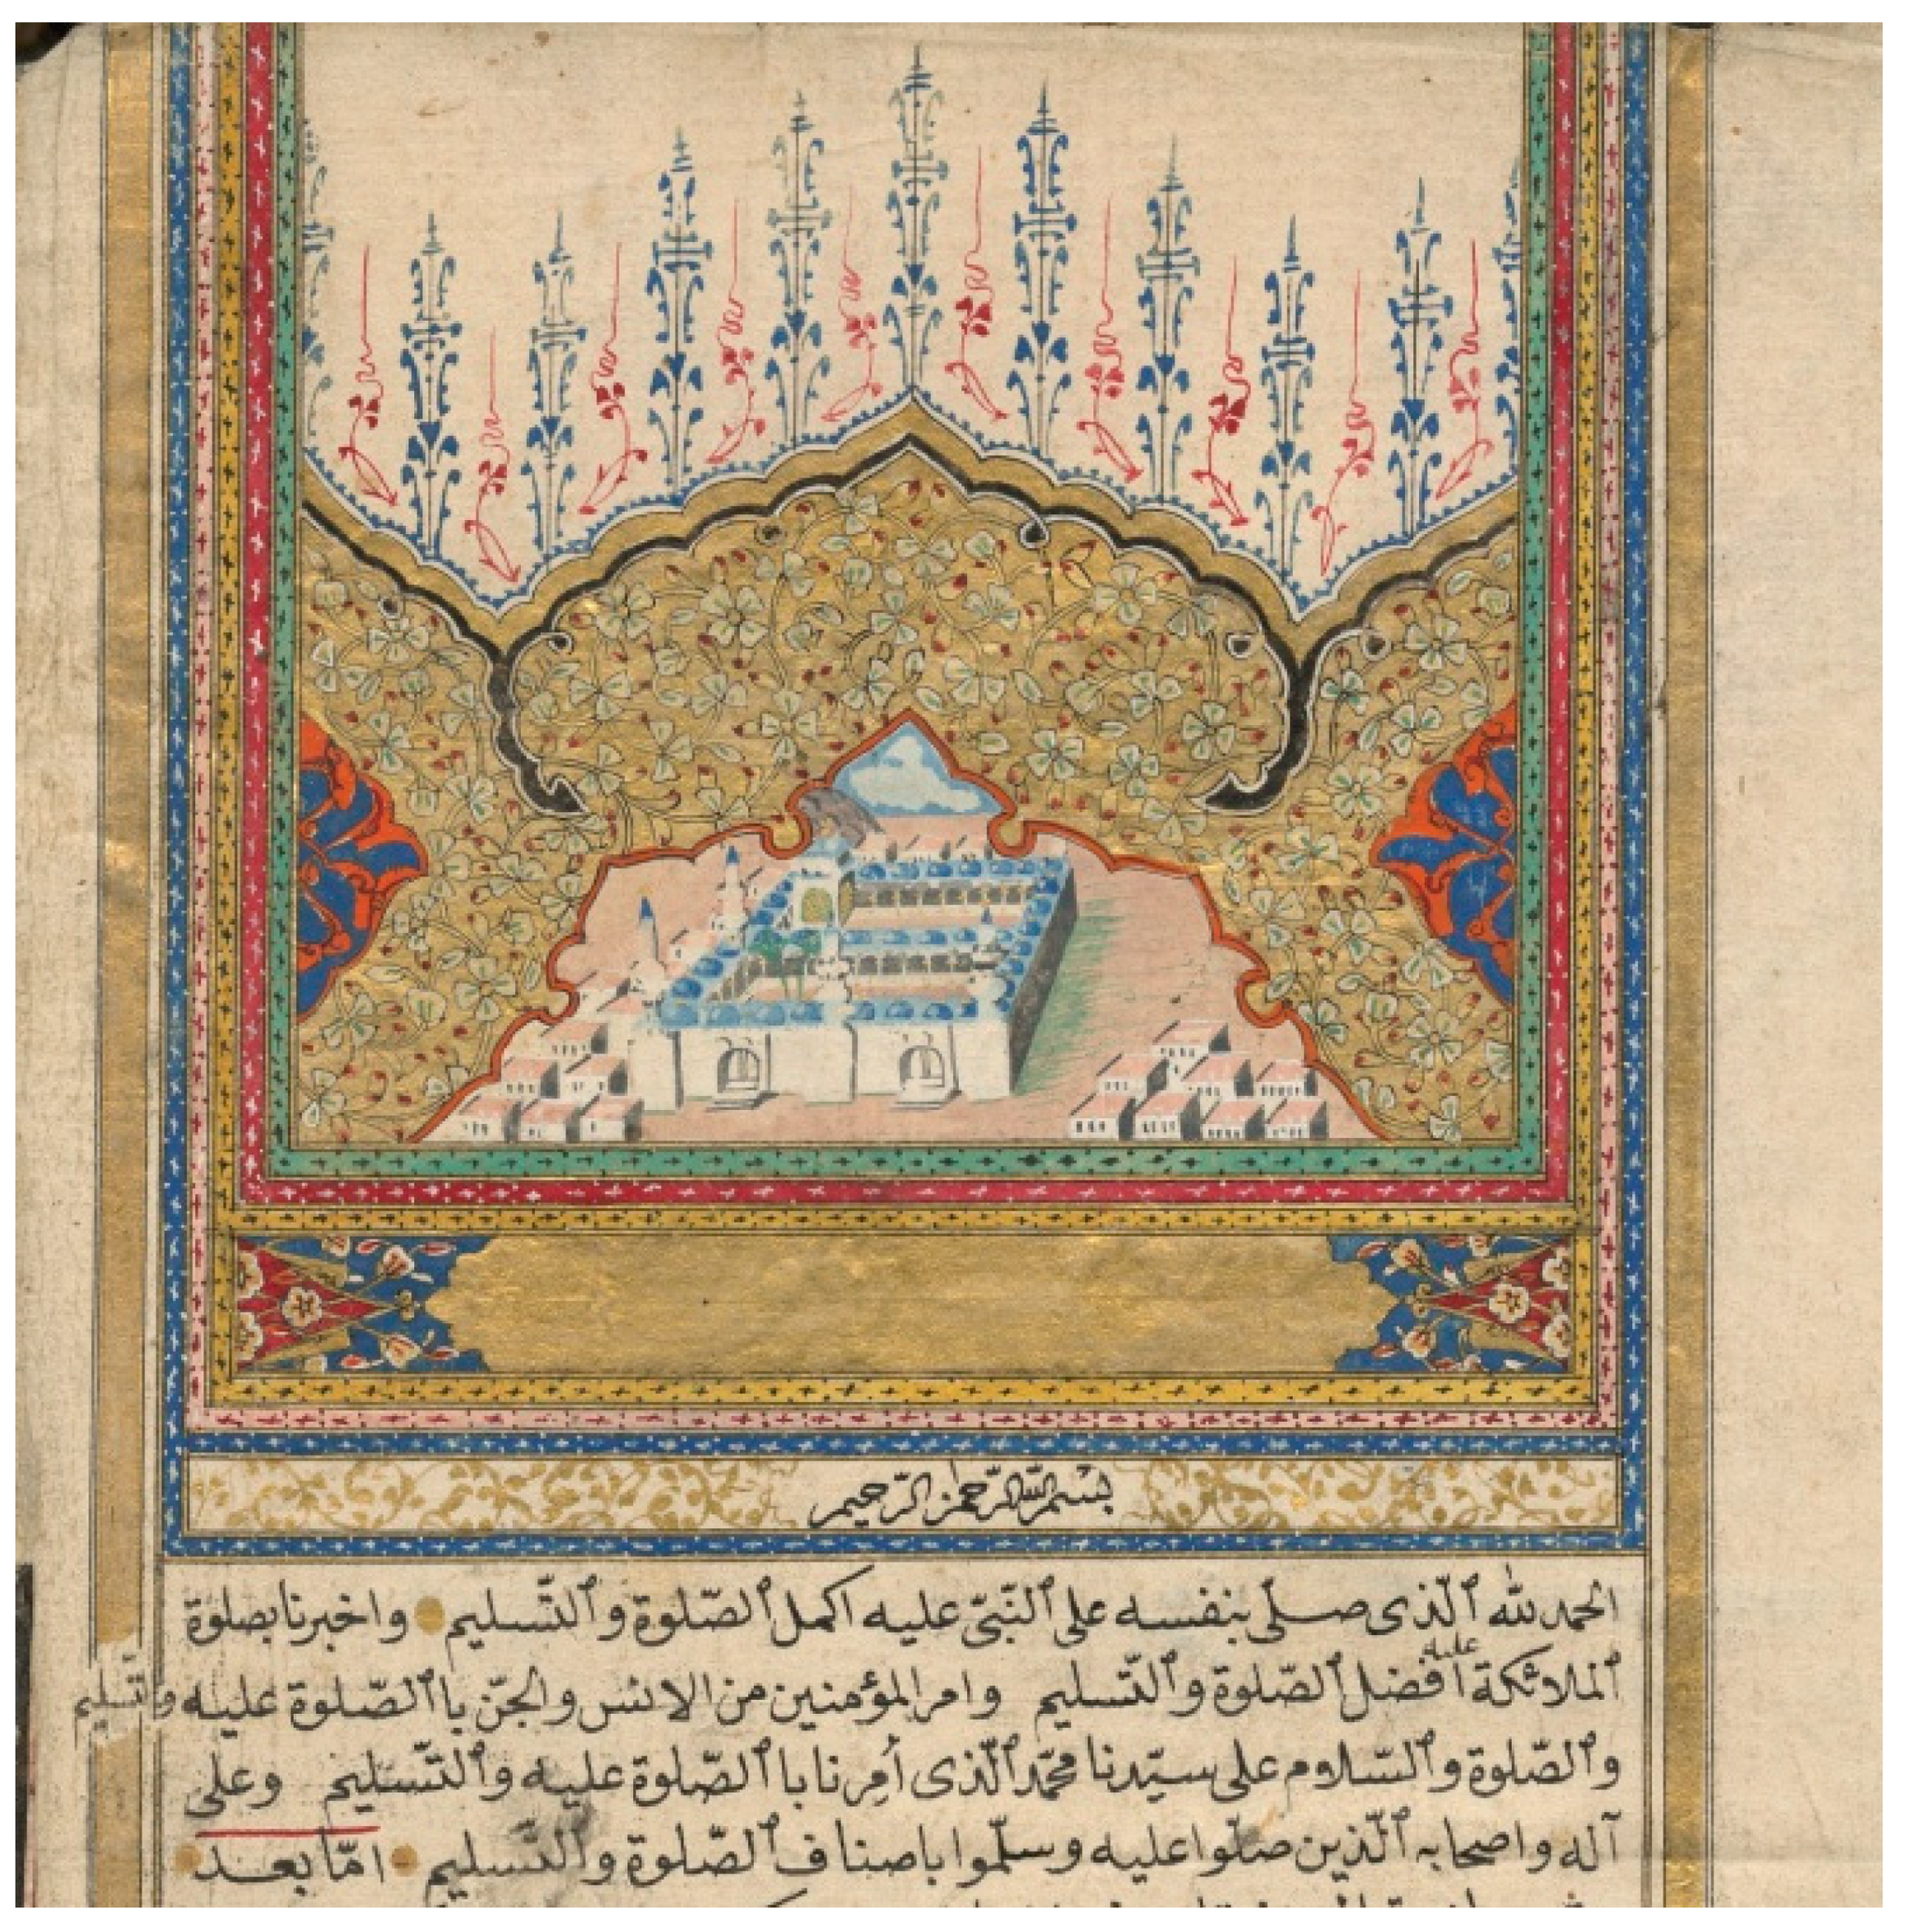 بسم الله الرحمن الرحيم
الحمد لله ٱلّذى صلّى بنفسه على ٱلنّبىّ عليه اكمل ٱلصّلوة وٱلتّسليم واخبرنا بصلوة
ٱلملائكة عليه افضل ٱلصّلوة وٱلتّسليم وامر المؤمنين من الانس والجنّ باٱلصّلوة عليه وٱلتّسليم
وٱلصّلوة وٱلسّلام على سيّدنا محمّد ٱلّذى أُمِرنا باٱلصّلوة عليه وٱلتّسليم وعلى
آله واصحابه ٱلّذين صلّوا عليه وسلّموا باصناف ٱلصّلوة وٱلتّسليم امّا بعد